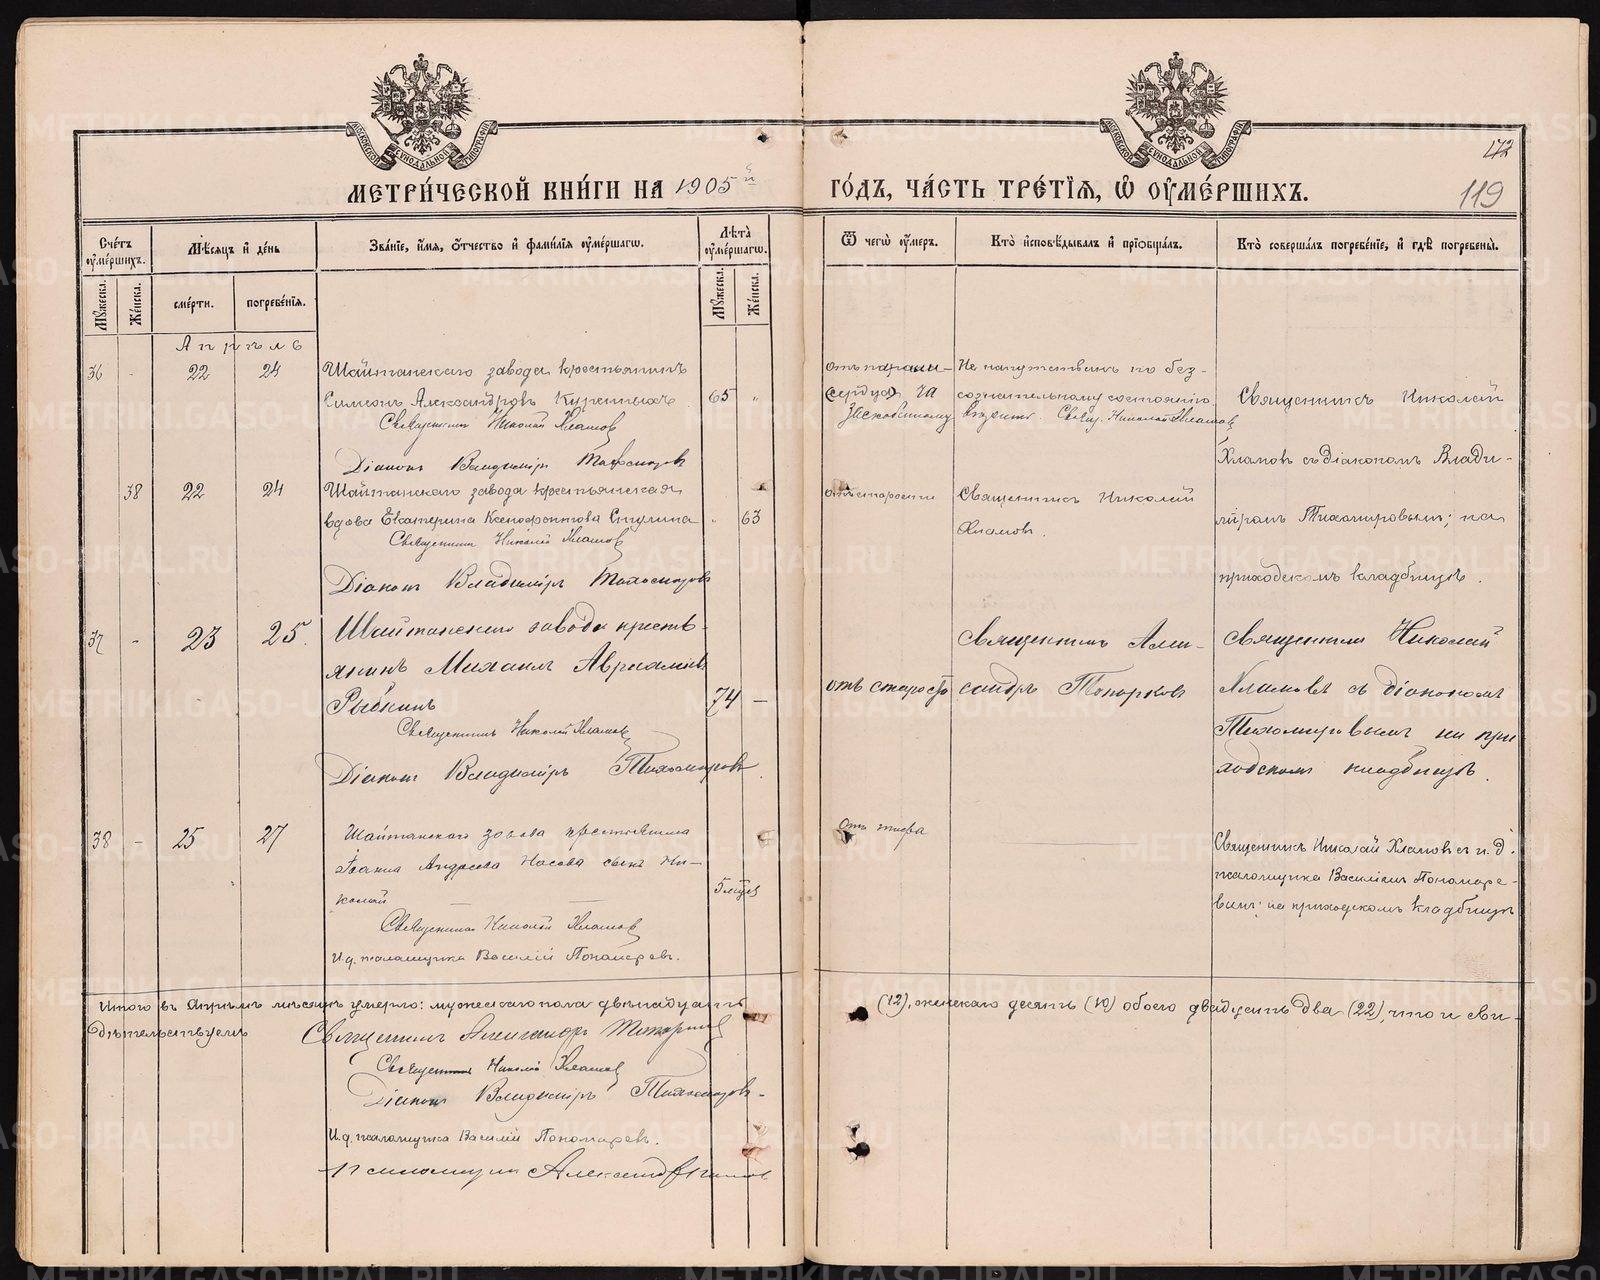 МЕТРИ́ЧЕСКОЙ КНИ́ГИ НА 1905й ГО́ДЪ, ЧА́СТЬ ТРЕ́ТІЯ, Ѿ ОУМЕ́РШИХЪ.
172
119
Сче́тъ оуме́ршихъ.
Мѣ́сяцъ и҆ де́нь
Зва́ніе, и҆́мя, ѻ҆́тчество и҆ фами́лія оуме́ршагѡ.
Лѣ́та оуме́ршагѡ.
Ѿ чегѡ̀ оу҆́меръ.
Кто̀ и҆сповѣ́дывалъ и҆ пріѻбща́лъ.
Кто̀ соверша́лъ погребе́ніе, и҆ гдѣ̀ погребены̀.
Мꙋ́жеска.
Же́нска.
сме́рти.
погребе́нія.
Мꙋ́жеска.
Же́нска.
Апрѣль
36 - 22 24 Шайтанскаго завода крестьянинъ
Симеонъ Александровъ 65 "
Священникъ Николай Хламовъ
Діаконъ Владиміръ Тихомировъ
отъ
сердца
Не напутствованъ по без-
сознательному состоянію
Свящ. Николай Хламовъ
Священникъ Николай
Хламовъ съ діакономъ Влади-
міромъ Тихомировымъ; на
приходскомъ кладбищѣ.
38 22 24 Шайтанскаго завода крестьянская
вдова Екатерина Ксенофонтова " 63
Священникъ Николай Хламовъ
Діаконъ Владиміръ Тихомировъ
отъ старости
Священникъ Николай
Хламовъ.
37 - 23 25. Шайтанскаго завода кресть-
янинъ Михаилъ Авраамовъ
Рыбкинъ 74 —
Священникъ Николай Хламовъ
Діаконъ Владиміръ Тихомировъ
отъ старости
Священникъ Алек-
сандръ Топорковъ
Священникъ Николай
Хламовъ съ діакономъ
Тихомировымъ на при-
ходскомъ кладбищѣ.
38 - 25 27 Шайтанскаго завода крестьянина
Іоанна Андреева Носова сынъ Ни-
колай 5 мцев
Священникъ Николай Хламовъ
И.д. псаломщика Василій Пономаревъ.
Отъ тифа
Священникъ Николай Хламовъ с и. д.
псаломщика Василіемъ Пономаре-
вымъ; на приходскомъ кладбищѣ
Итого въ Апрѣлѣ мѣсяцѣ умерло: мужескаго пола двѣнадцать (12), женскаго десять (10) обоего двадцать два (22), что и сви-
дѣтельствуемъ
Священникъ Александръ Топорковъ
Священникъ Николай Хламовъ
Діаконъ Владиміръ Тихомировъ.
И.д. псаломщика Василій Пономаревъ.
Псаломщикъ
METRIKI.GASO-URAL.RU